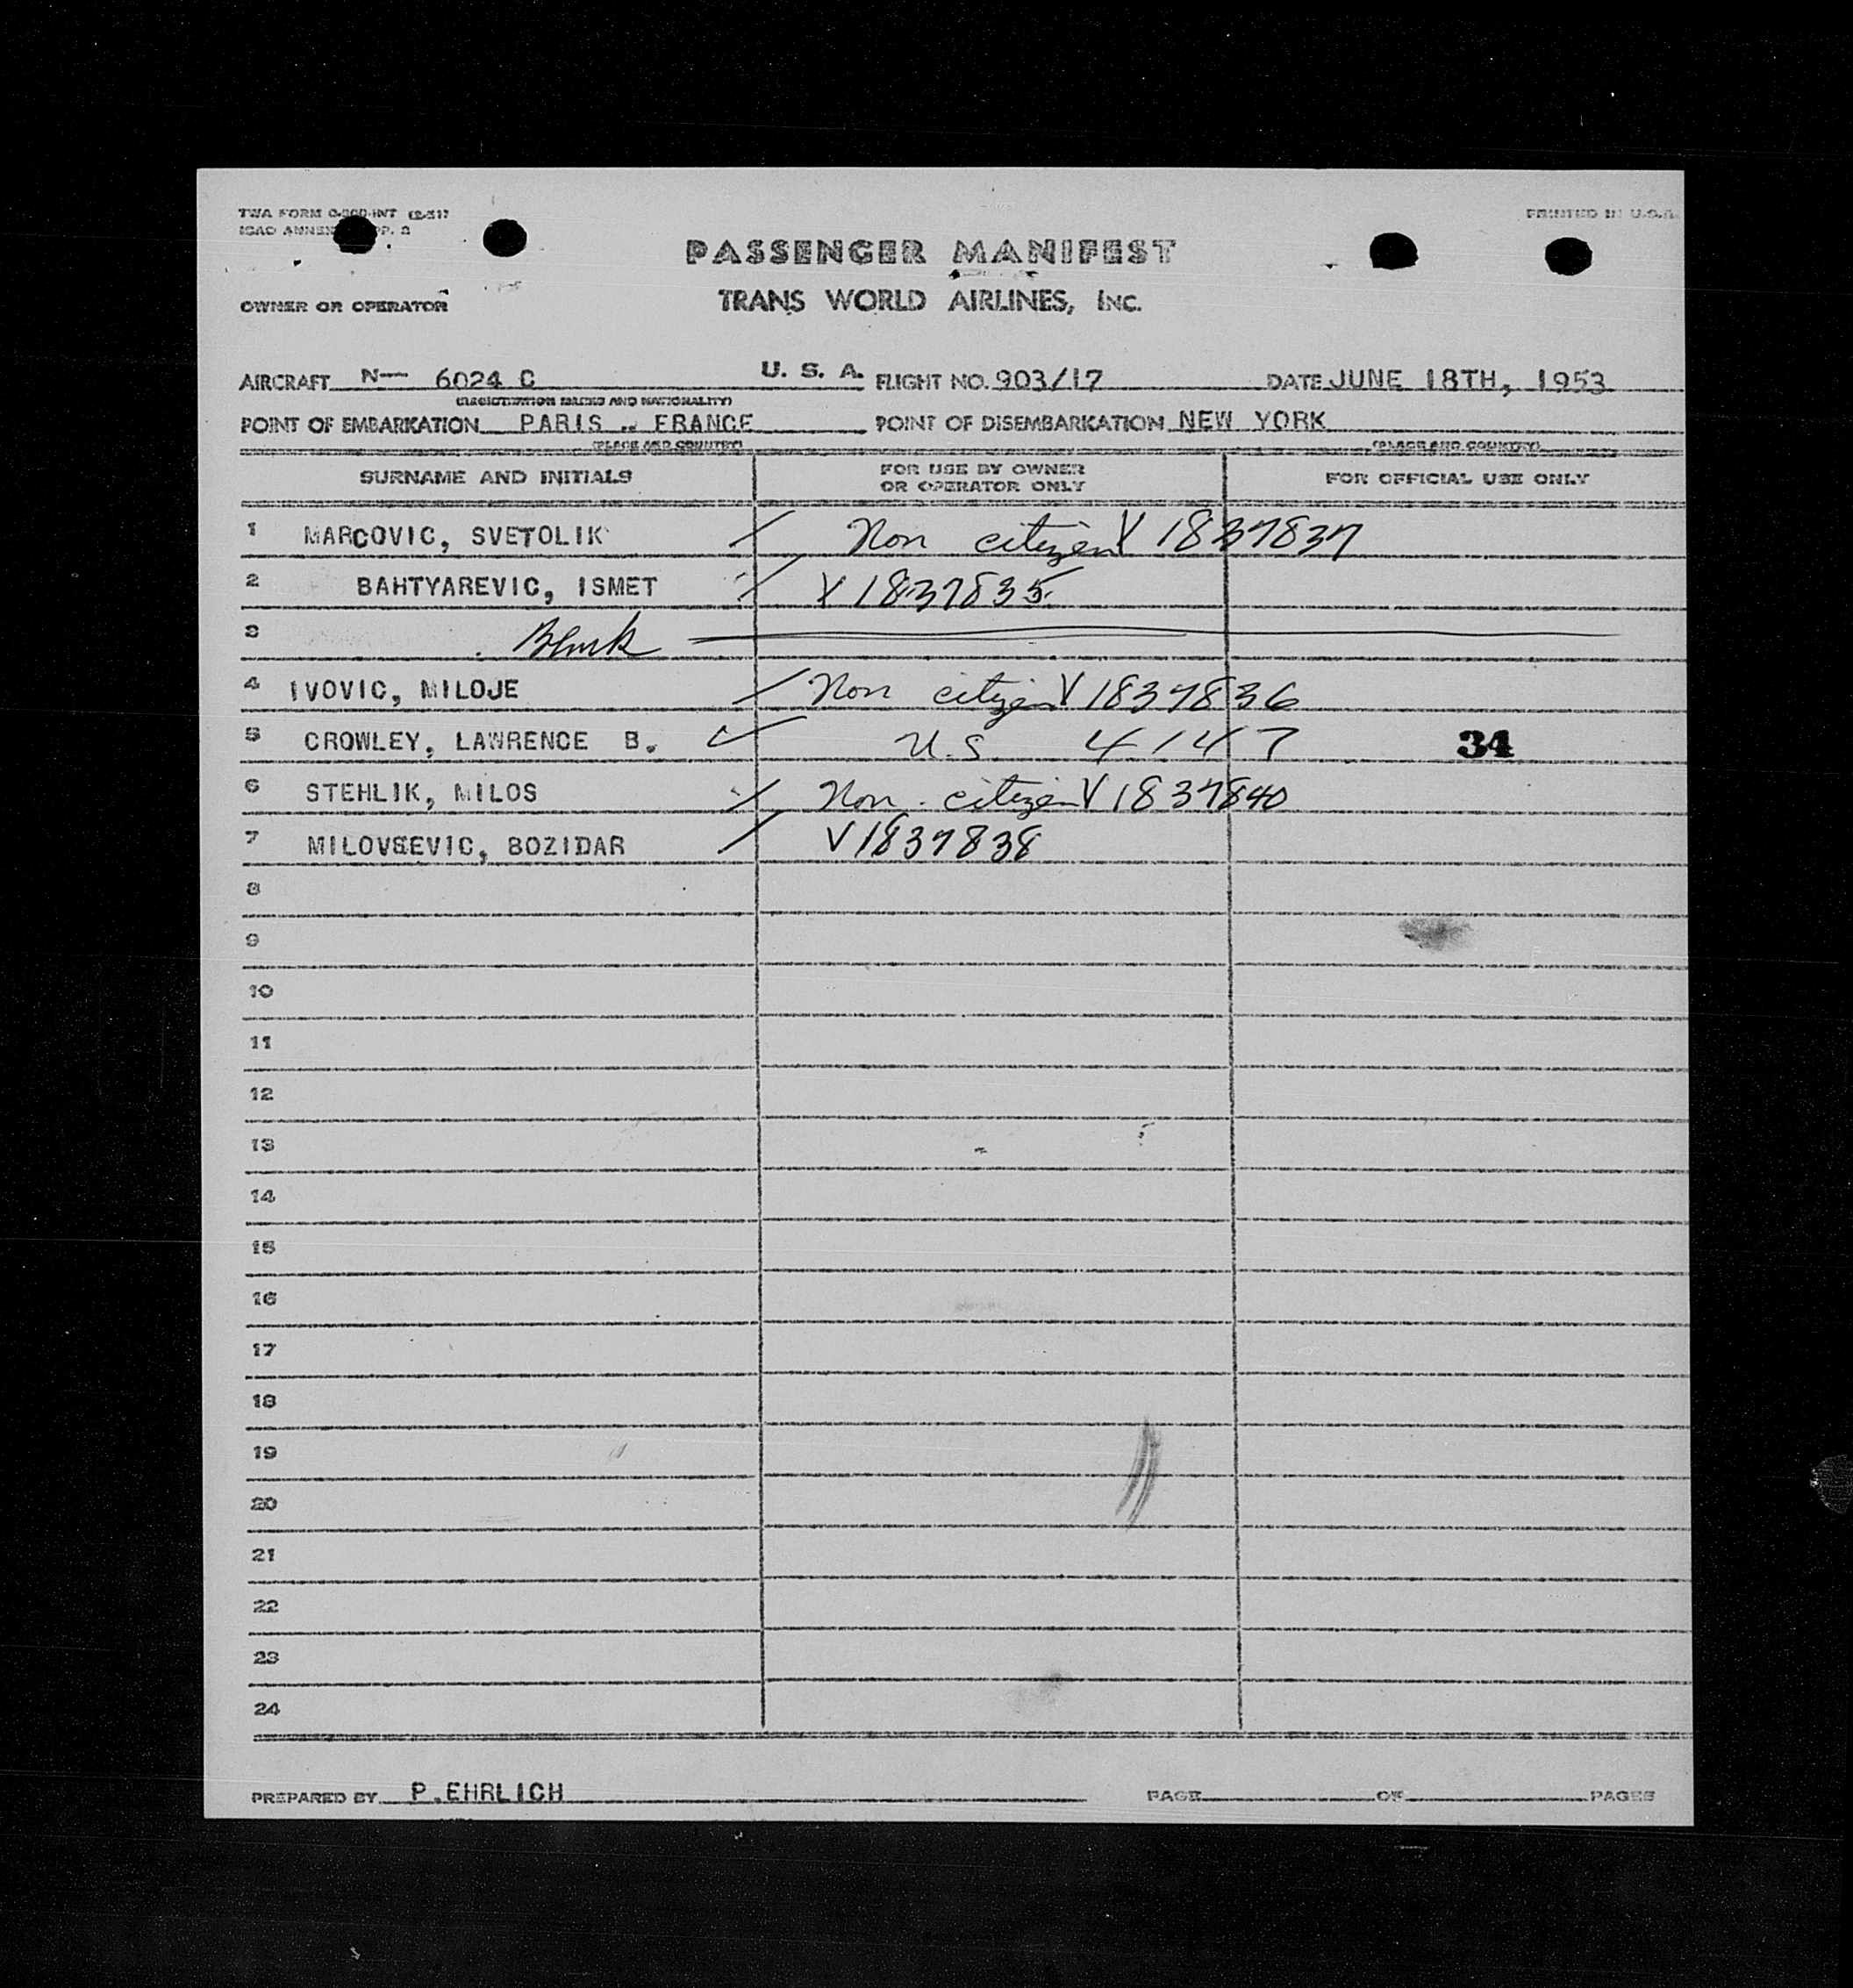 TWA FORM O-200-INT (2-51)
PRINTED IN U.S.A.
ICAO ANNEX PP. 2
PASSENGER MANIFEST
OWNER OR OPERATOR TRANS WORLD AIRLINES, INC.
AIRCRAFT N— 6024 C U. S. A. FLIGHT NO. 903/17 DATE JUNE 18TH, 1953
(REGISTRATION MARKS AND NATIONALITY)
POINT OF EMBARKATION PARIS - FRANCE POINT OF DISEMBARKATION NEW YORK
(PLACE AND COUNTRY) (PLACE AND COUNTRY)
SURNAME AND INITIALS FOR USE BY OWNER OR OPERATOR ONLY FOR OFFICIAL USE ONLY
1 MARCOVIC, SVETOLIK / Non citizen V 1837837
2 BAHTYAREVIC, ISMET / V 1837835
3 Blank
4 IVOVIC, MILOJE / Non citizen V 1837836
5 CROWLEY, LAWRENCE B. ✓ U.S. 4147 34
6 STEHLIK, MILOS / Non citizen V 1837840
7 MILOVSEVIC, BOZIDAR / V 1837838
8
9
10
11
12
13
14
15
16
17
18
19
20
21
22
23
24
PREPARED BY P.EHRLICH PAGE OF PAGES